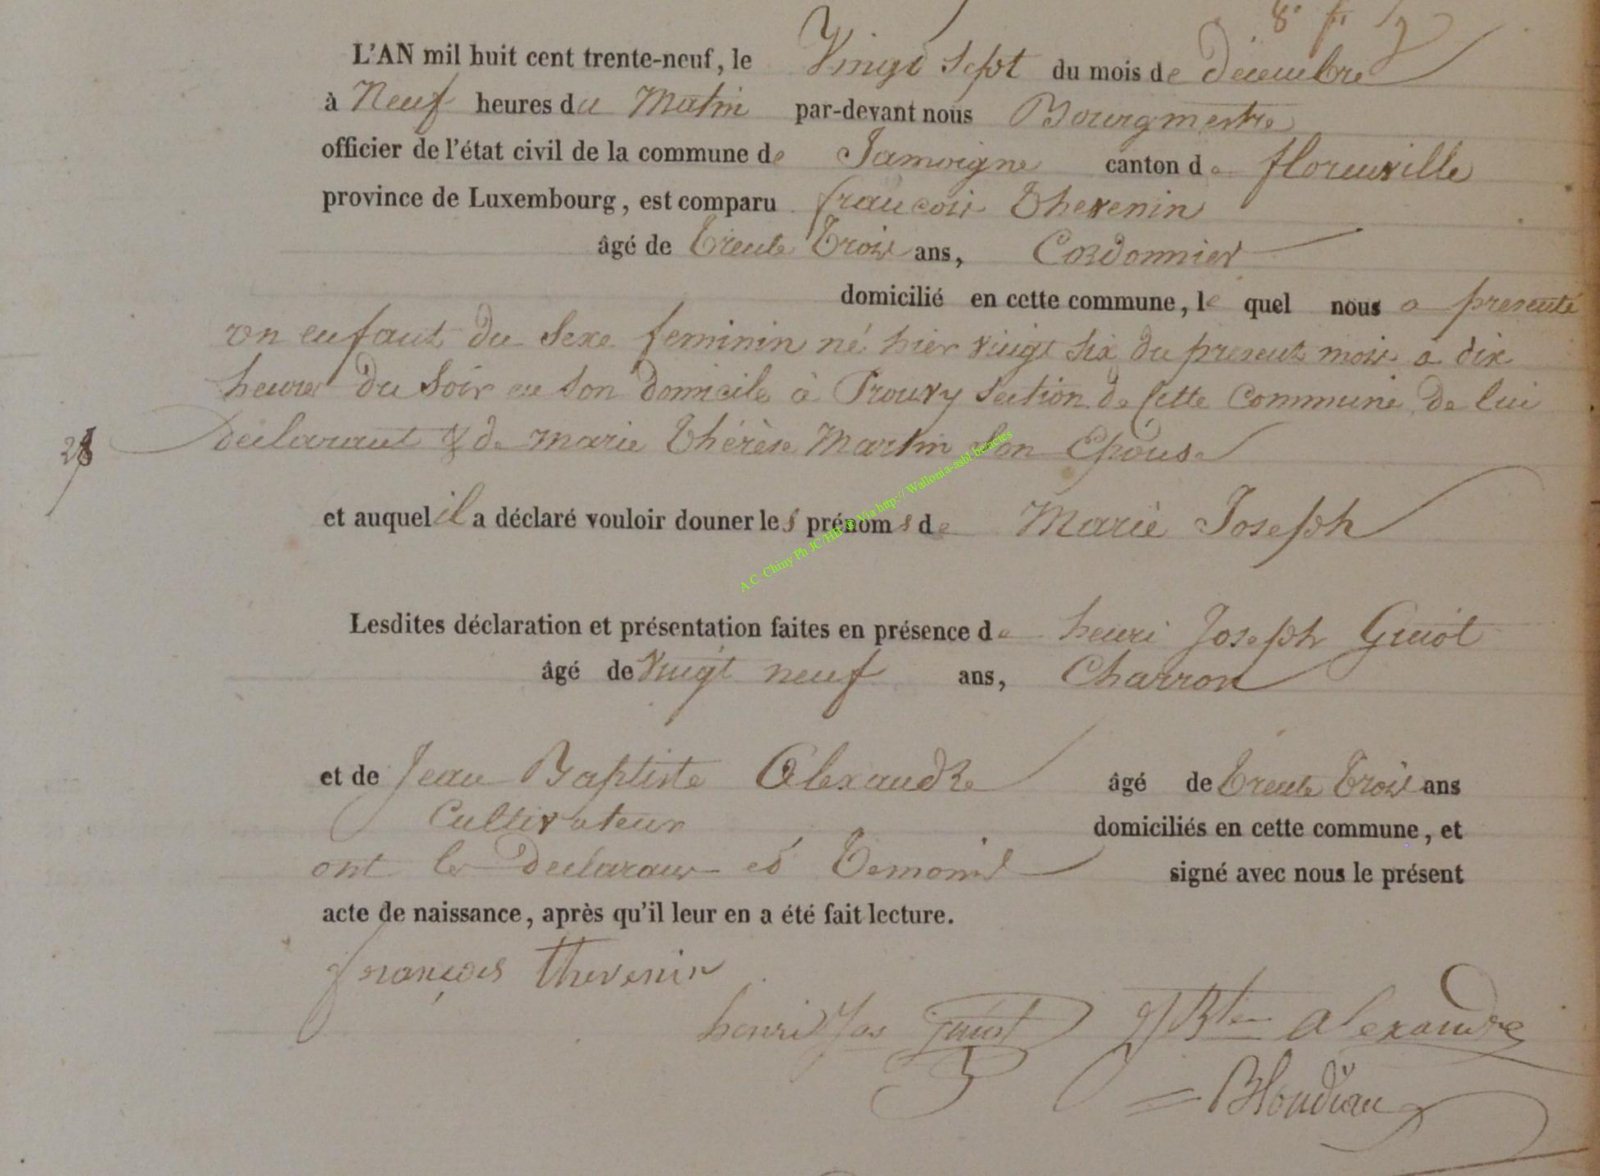 8e fr
L'AN mil huit cent trente-neuf, le Vingt Sept du mois de décembre
à Neuf heures du Matin par-devant nous Bourgmestre
officier de l'état civil de la commune de Jamoigne canton de florenville
province de Luxembourg, est comparu francois Thevenin
âgé de Trente Trois ans, Cordonnier
domicilié en cette commune, le quel nous a presenté
un enfant du Sexe feminin né hier vingt six du present mois à dix
heures du Soir en Son domicile à Prouvy Section de Cette Commune de lui
Déclarant & de marie Thérèse Martin Son Epouse
28
et auquel il a déclaré vouloir donner les prénoms de Marie Joseph
A.C. Chiny Ph JC Via http:// Wallonia-asbl
Lesdites déclaration et présentation faites en présence de henri Joseph Guiot
âgé de Vingt neuf ans, Charron
et de Jean Baptiste Alexandre âgé de Trente Trois ans
Cultivateur domiciliés en cette commune, et
ont le Declarant et Temoins signé avec nous le présent
acte de naissance, après qu'il leur en a été fait lecture.
françois thevenin
henri Jos guiot J Bte alexandre
Blondiau